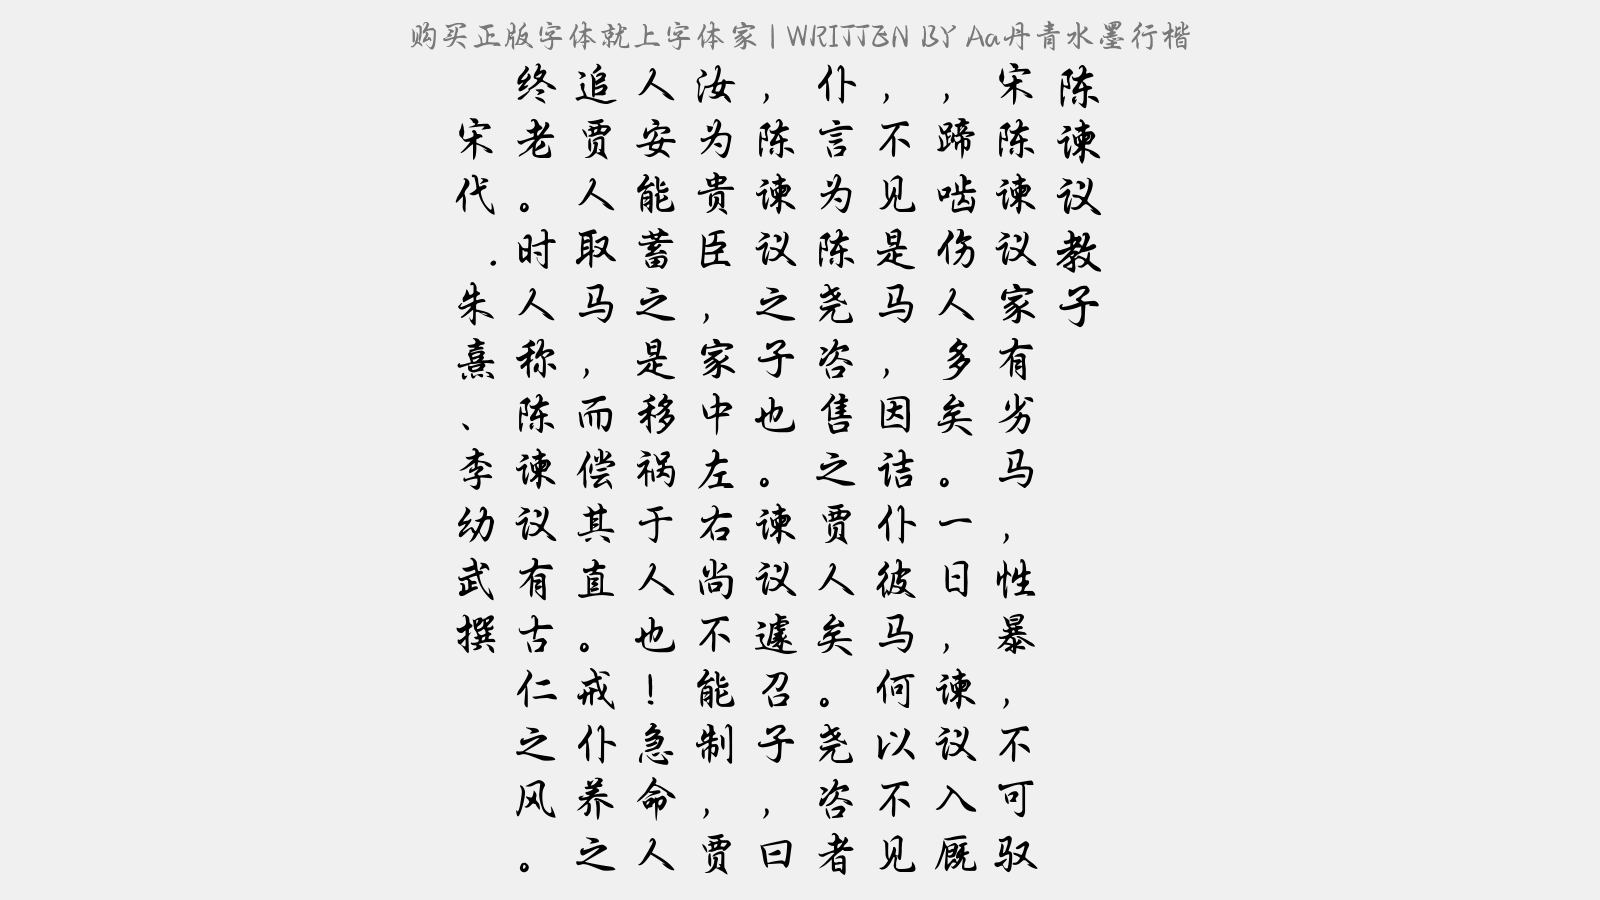 购买正版字体就上字体家 | WRITTEN BY Aa丹青水墨行楷
陈谏议教子
宋陈谏议家有劣马，性暴，不可驭
，蹄啮伤人多矣。一日，谏议入厩
，不见是马，因诘仆彼马何以不见
仆言为陈尧咨售之贾人矣。尧咨者
，陈谏议之子也。谏议遽召子，曰
汝为贵臣，家中左右尚不能制，贾
人安能蓄之，是移祸于人也！急命人
追贾人取马，而偿其直。戒仆养之
终老。时人称陈谏议有古仁之风。
宋代.朱熹、李幼武撰